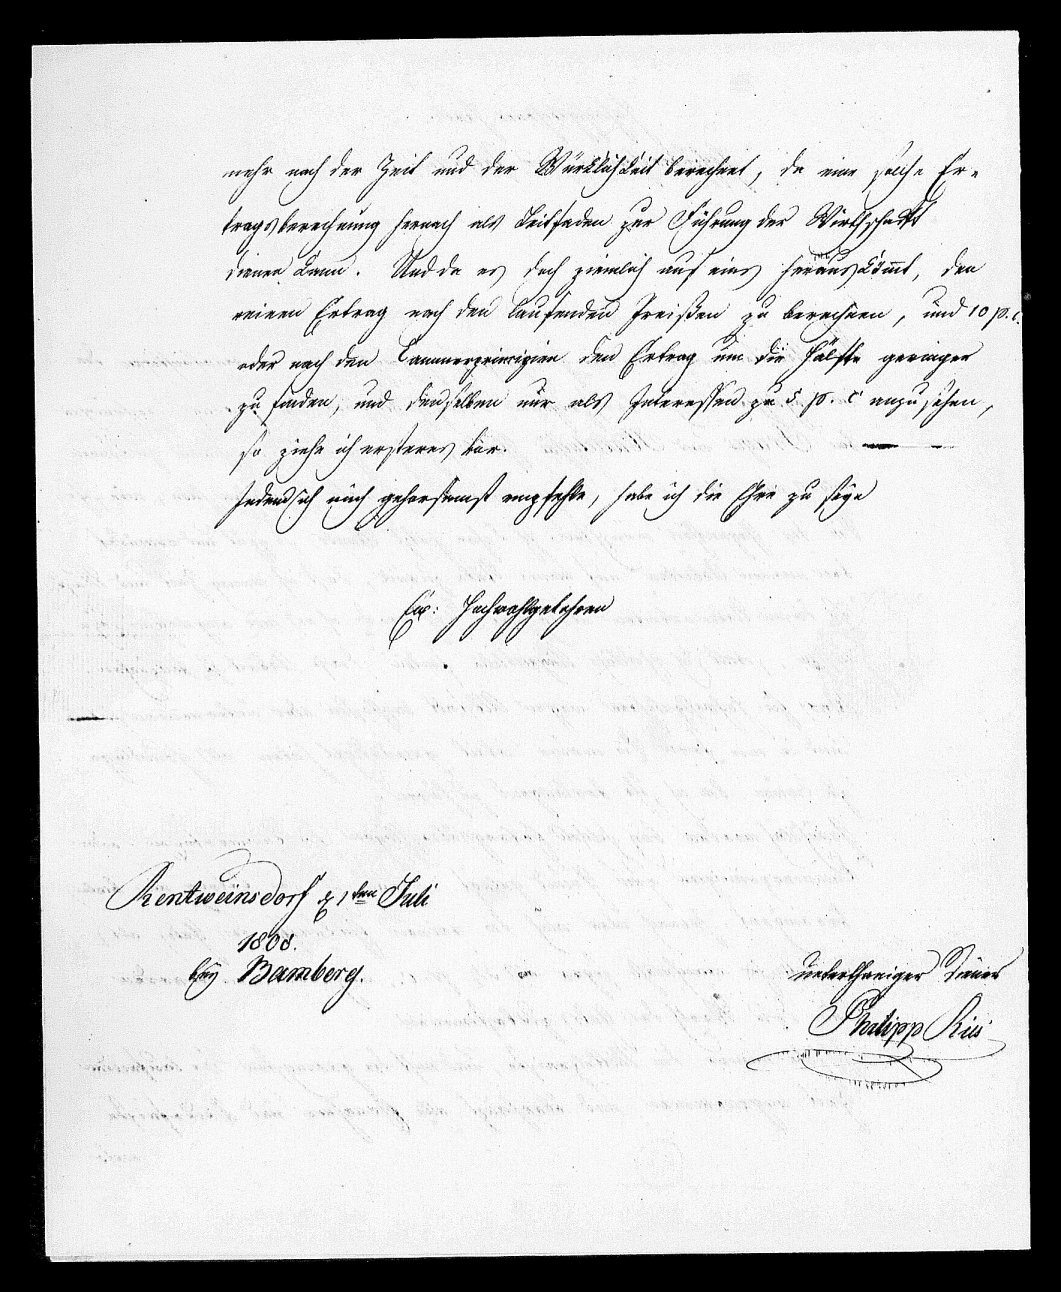 mehr nach der Zeit und der Würklichkeit berechnet, da eine solche Er-
tragsberechnung hernach als Leitfaden zur Führung der Wirthschaft
dienen kann. Und da es doch ziemlich auf eins herauskömmt, den
reinen Ertrag nach den laufenden Preißen zu berechnen, und 10 p. c.
oder nach den Cammerprincipien den Ertrag um die Hälfte geringer
zu finden, und denselben nur als Interessen zu 5 p. c anzusehen,
so ziehe ich ersteres vor.
Indem ich mich gehorsamst empfehle, habe ich die Ehre zu seyn
Ew: Hochwohlgebohren
Rentweinsdorf d 1ten Juli
1808.
bey Bamberg.
unterthäniger Diener
Philipp Ries